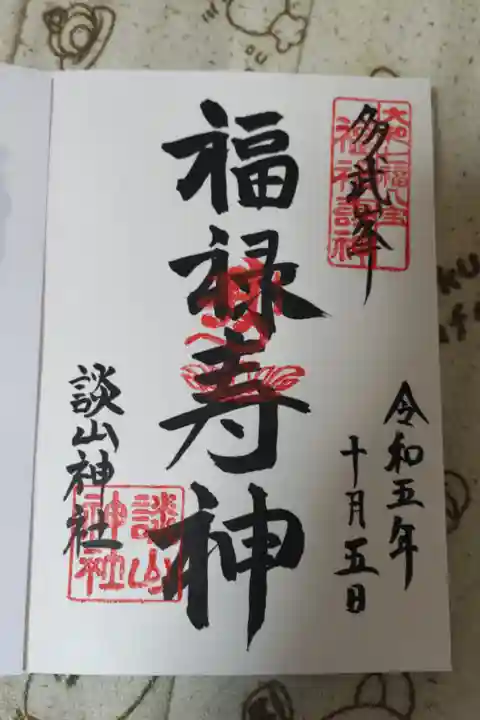 多武峯
大和七福八宝
令和五年
十月五日
福禄寿神
談山神社
談山
神社